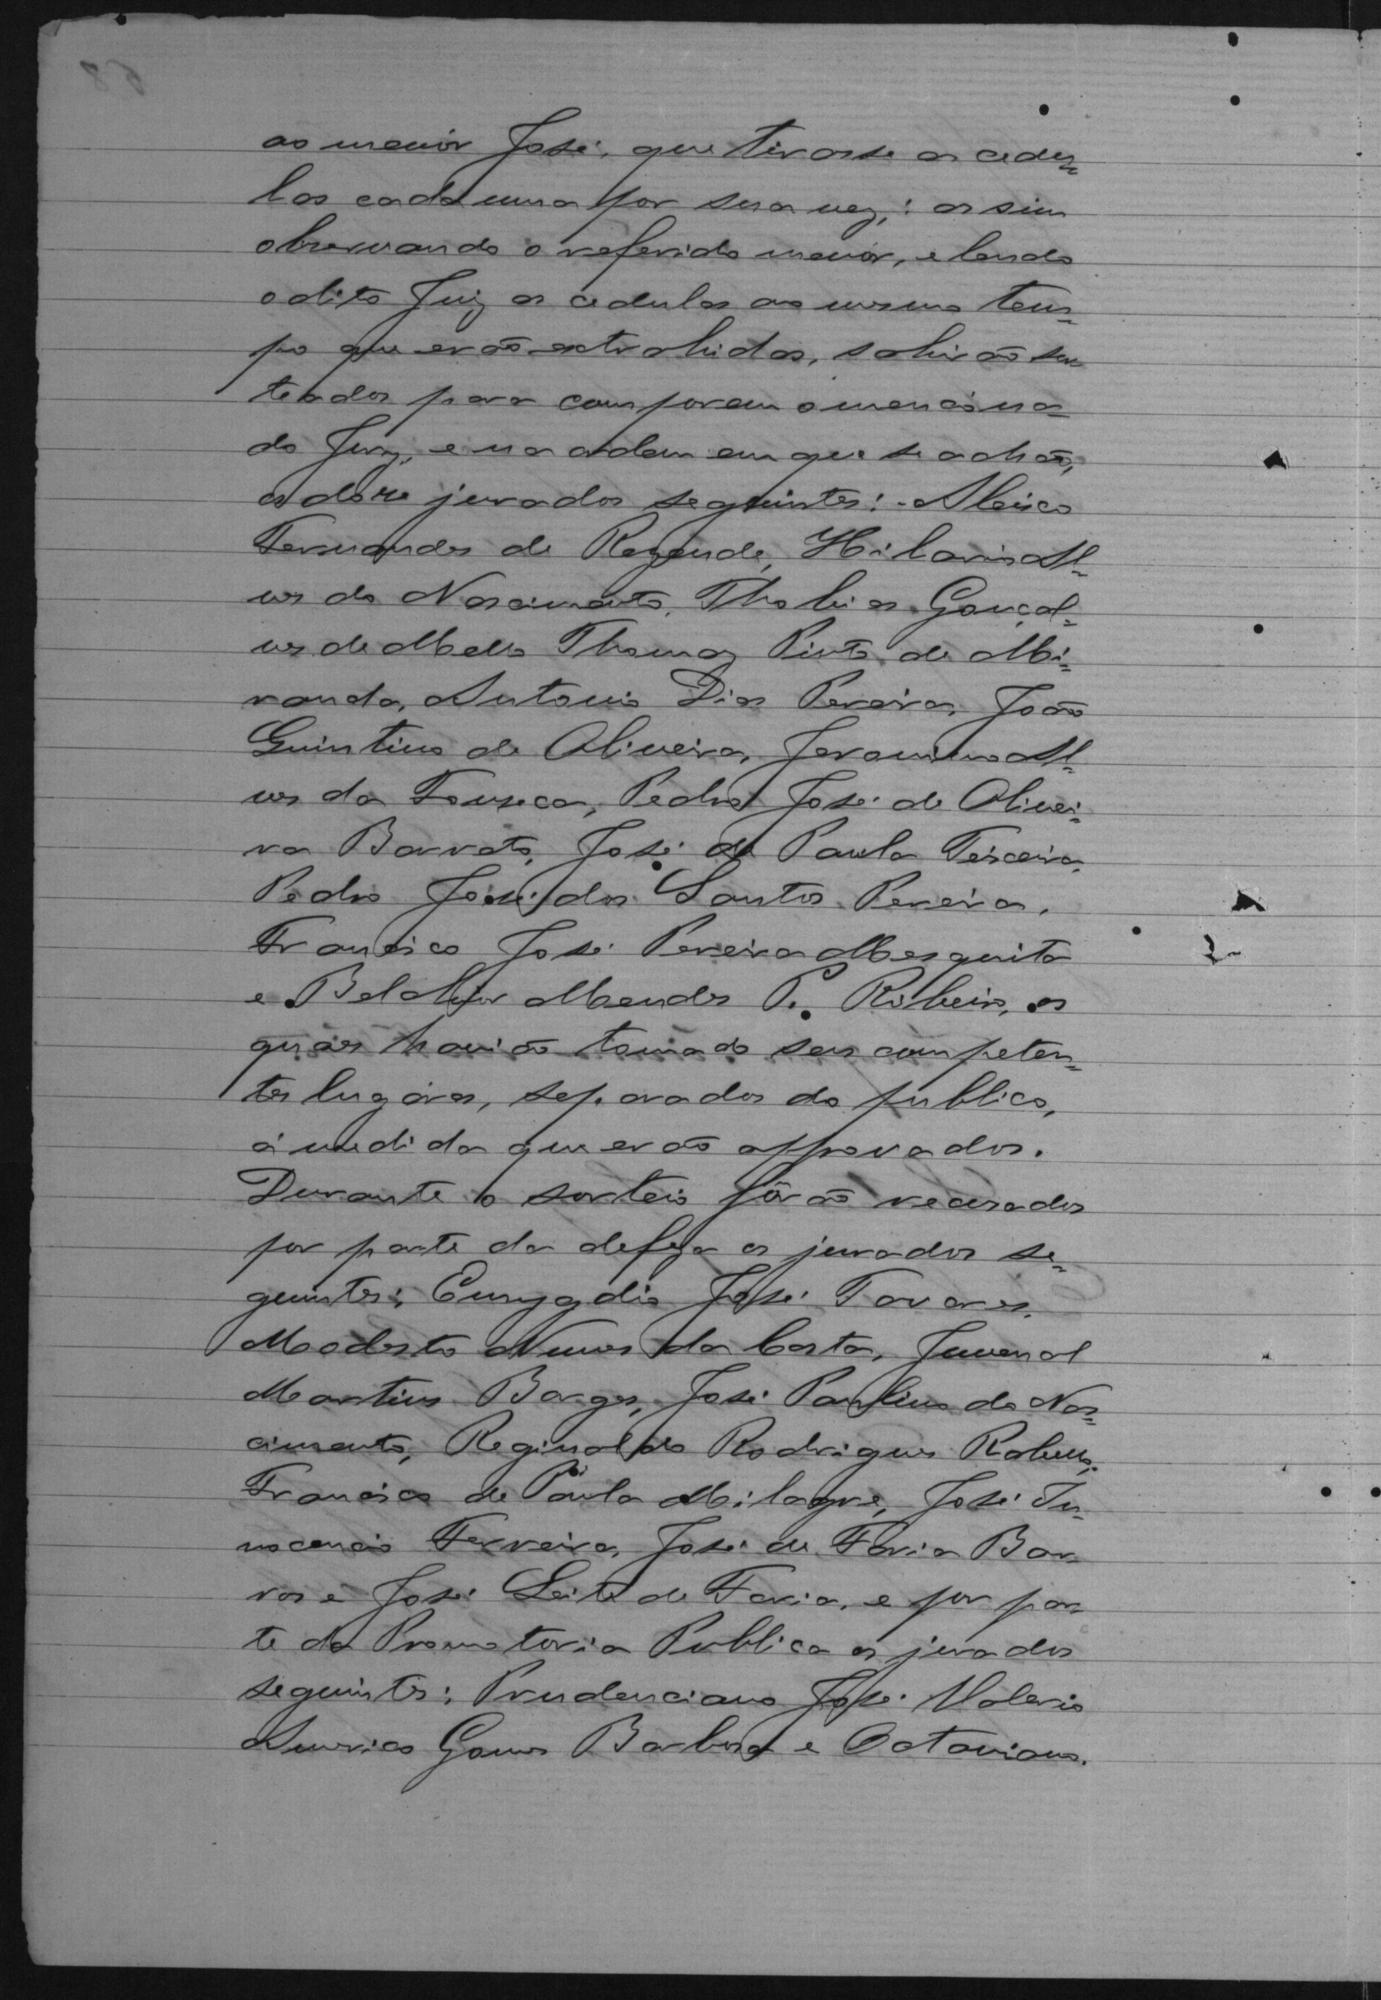 ao menór José, que tirasse as cedu-
las cada uma por sua vez,: assim
observando o referido menór, e lendo
o dito Juiz as cedulas ao mesmo tem-
po que erão extrahidas, sahirão sor-
teados para comporem o mencina-
do Jury, e na ordem em que se achão,
os doze jurados seguintes: - 
Fernandes de Rezende, Hilario Al-
ves do Nascimento, Thobias Gonçal-
ves de Mello Thomaz Pinto de Mi-
randa, Antonio Dias Pereira, João
Quintino de Oliveira, Jeronimo Al-
ves da Fonseca, Pedro José de Olivei-
ra Barreto, José de Paula Teixeira,
Pedro José dos Santos Pereira,
Francisco José Pereira Mesquita
e Belchior Mendes P. Ribeiro, os
quáes havião tomado seus competen-
tes lugáres, separados do publico,
á medida que erão approvados.
Durante o sorteio fôrão recusados
por parte da defeza os jurados se-
guintes: Emygdio José Tavares,
Modesto Nunes da Costa, Juvenal
Martins Borges, José Paulino do Nas-
cimento, Reginaldo Rodrigues Rabello,
Francisco de Paula Milagre, José In-
nocencio Ferreira, José de Faria Bar-
ros e José Leite de Faria, e por par-
te da Promotoria Publica os jurados
seguintes: Prudenciano José Valerio
Americo Gomes Barbosa e Octaviano.